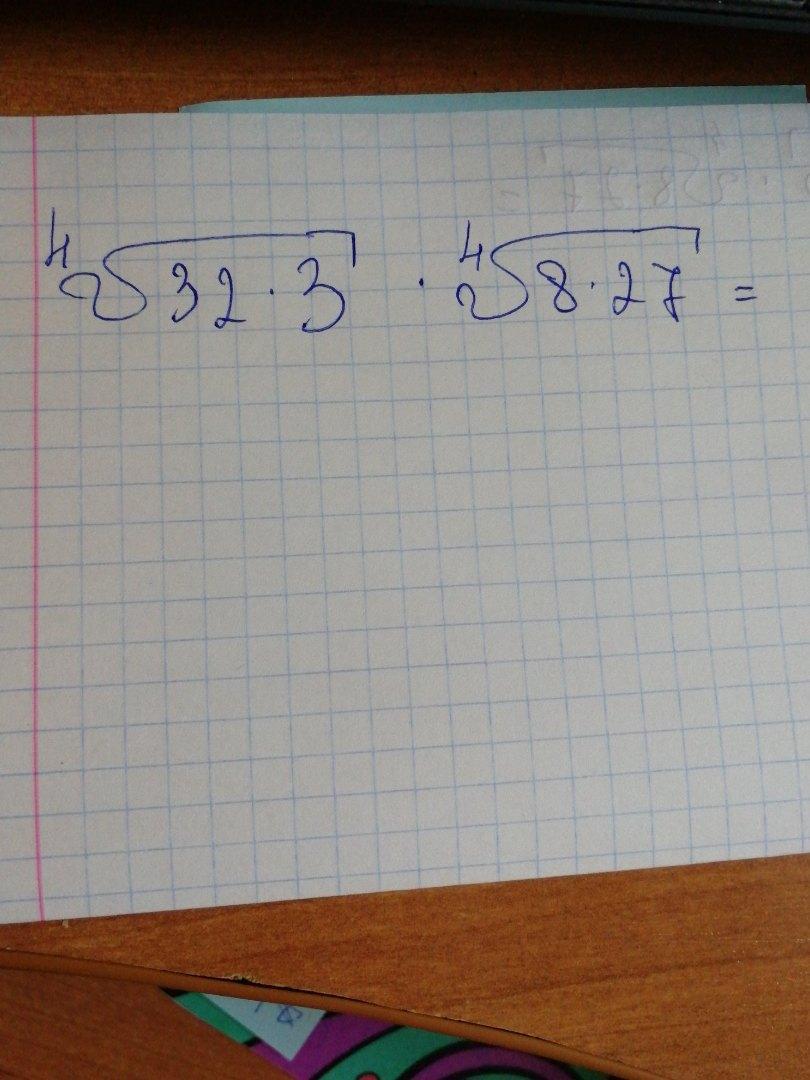 ⁴√32·3 · ⁴√8·27 =